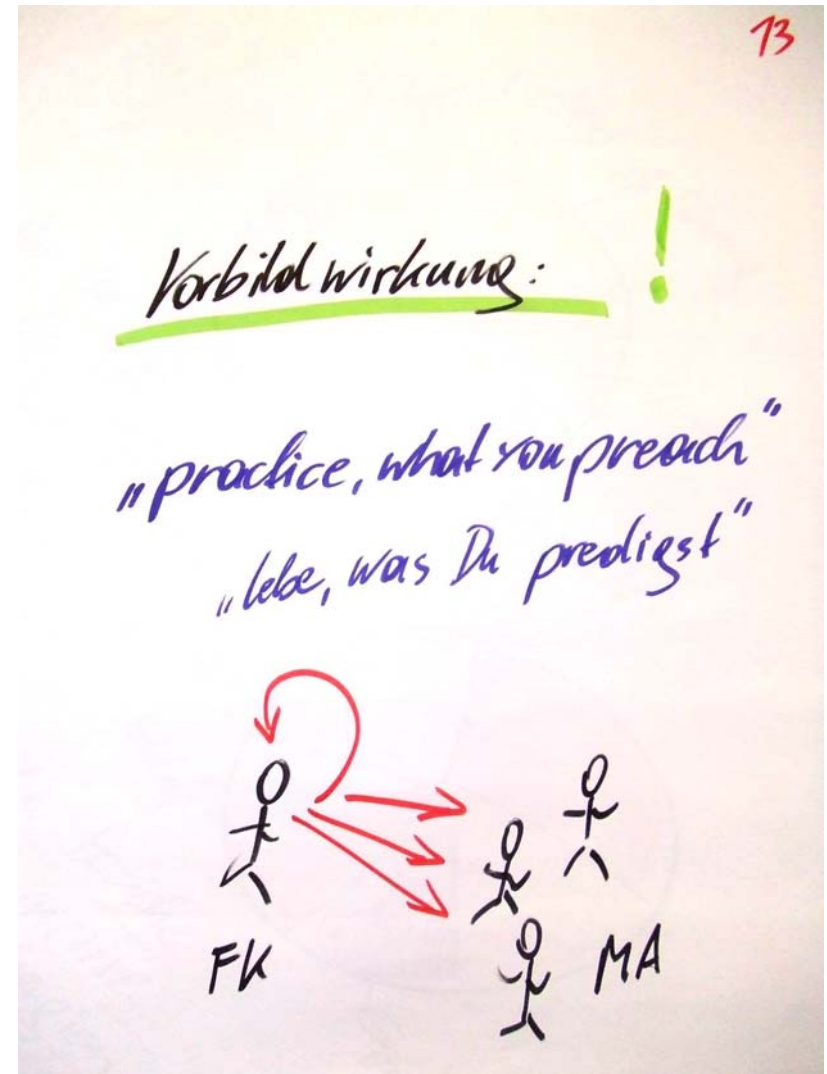 13
Vorbildwirkung: !
„practice, what you preach"
„lebe, was Du predigst"
FK
MA